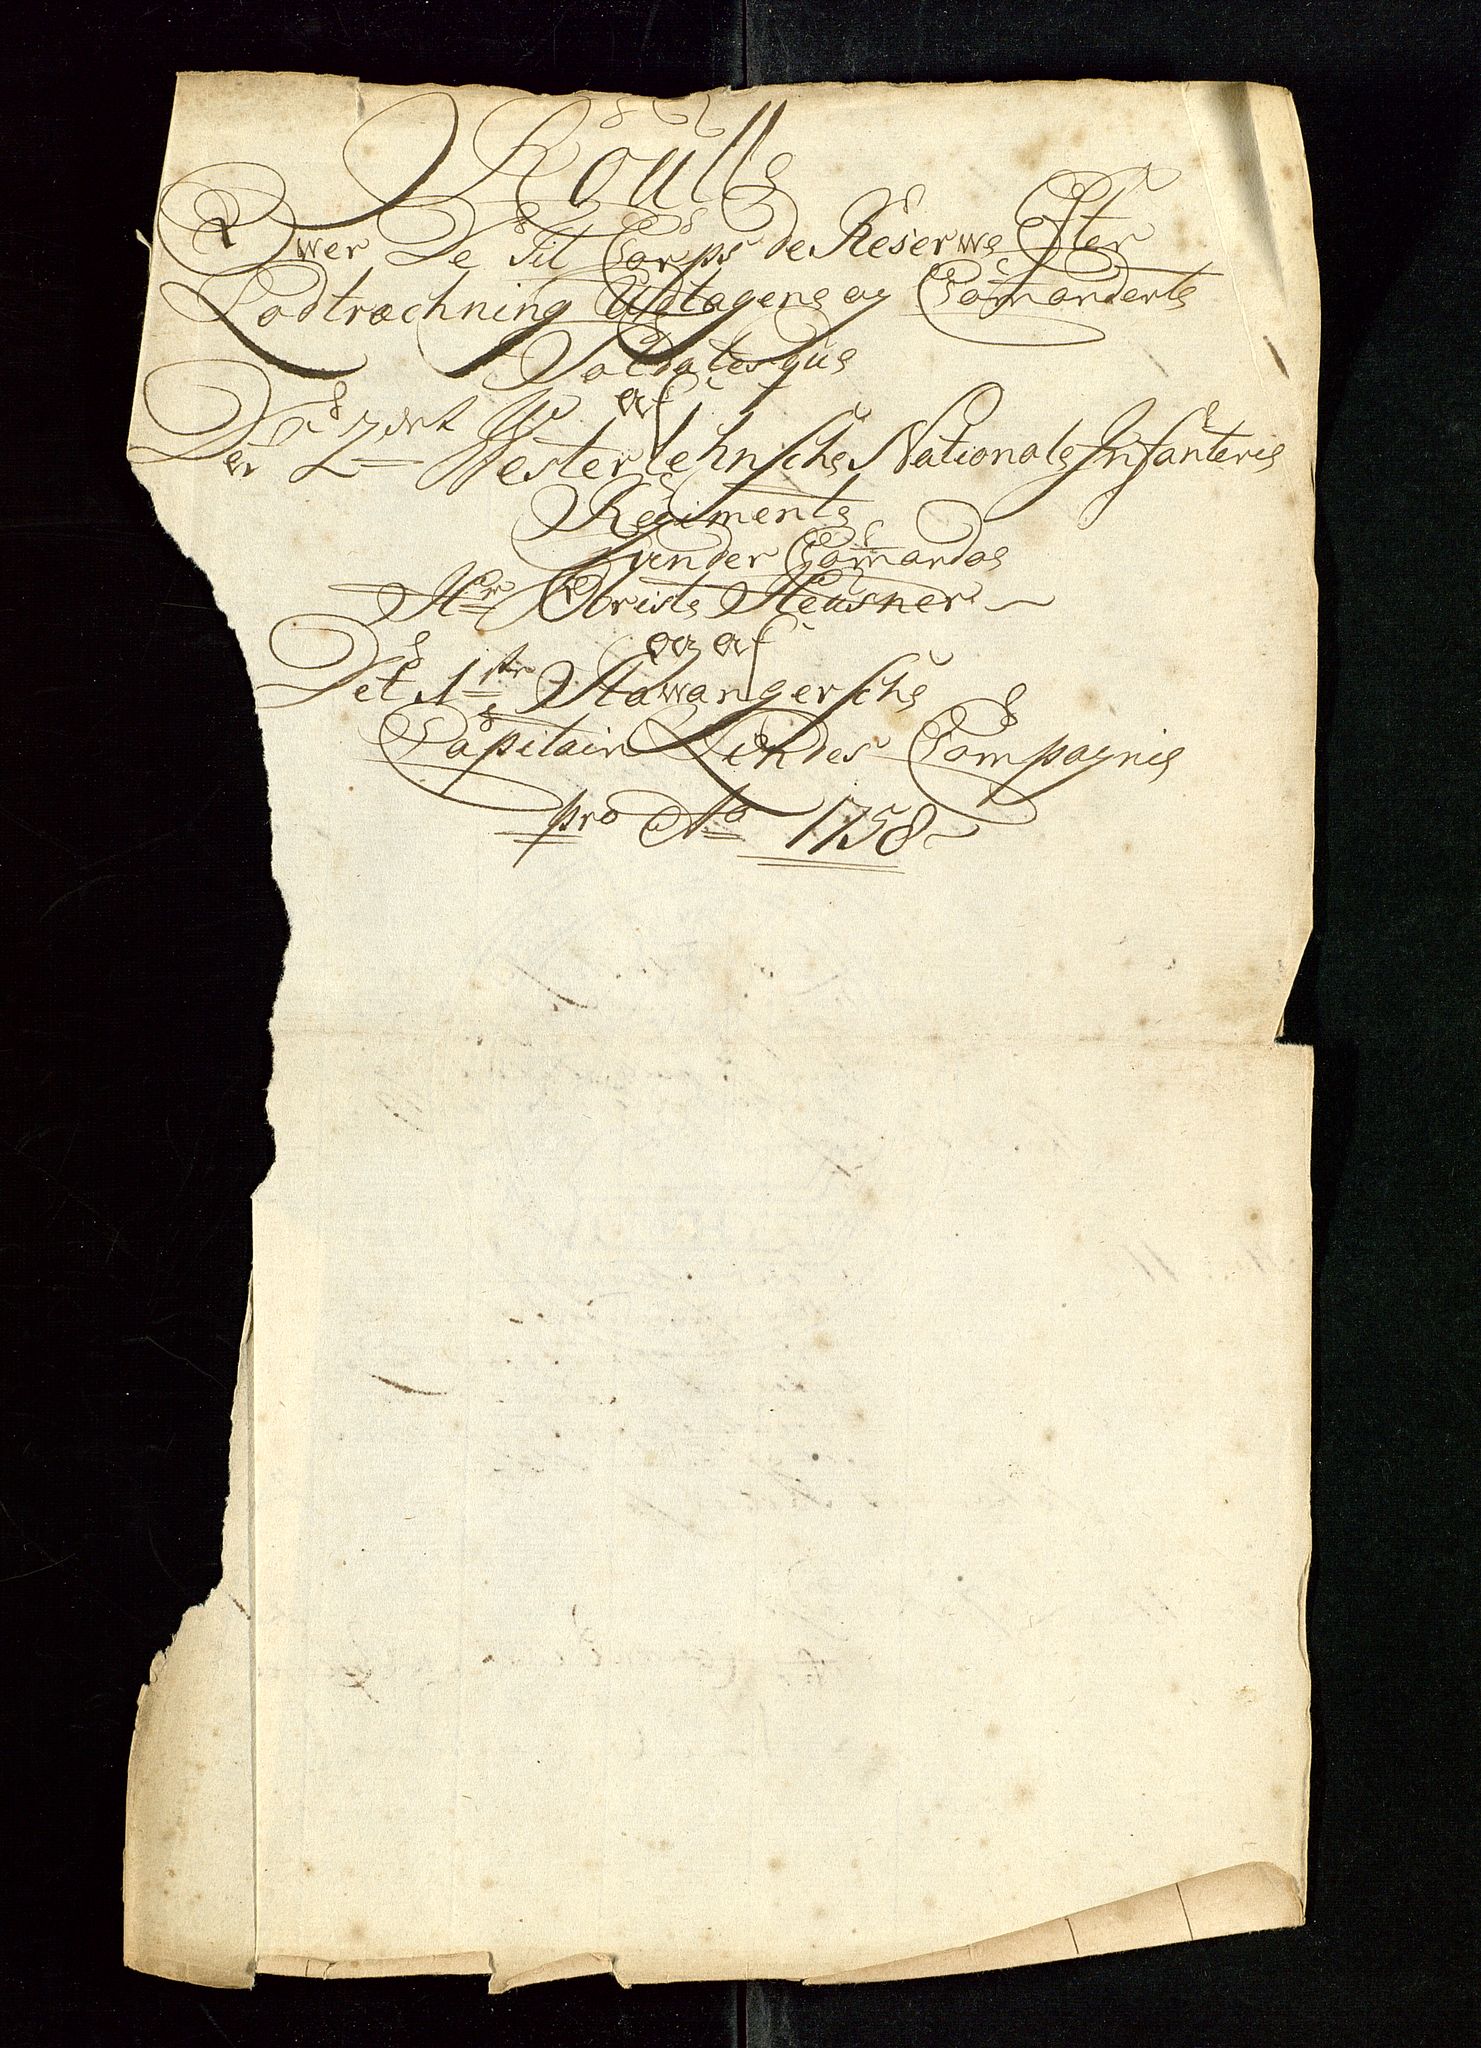 Roulle
Ower De til Corps de Reserwe Efter
Lodtræchning Udtagene og Comanderte
Soldatesque
af
Det 2det Westerlehnsche Nationale Infanterie
Regimente
under Comando
Hr Obriste Heusner
og af
Det 1ste Stawangersche
Capitain Lindes Compagnie
pro Ao 1758